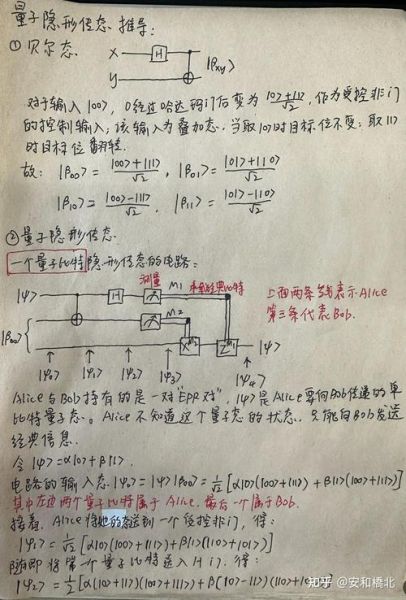 量子隐形传态推导:
① 贝尔态.
x H
y |βxy⟩
对于输入|00⟩, 0经过哈达玛门后变为 (|0⟩+|1⟩)/√2, 作为受控非门
的控制输入, 该输入为叠加态. 当取|0⟩时目标位不变; 取|1⟩
时目标位翻转.
故: |β00⟩ = (|00⟩+|11⟩)/√2, |β01⟩ = (|01⟩+|10⟩)/√2
|β10⟩ = (|00⟩-|11⟩)/√2, |β11⟩ = (|01⟩-|10⟩)/√2
② 量子隐形传态.
一个量子比特隐形传态的电路:
测量 M1
|ψ⟩ H
M2
|β00⟩
X^M2 Z^M1 |ψ⟩
上面两条线表示Alice
第三条代表Bob.
|ψ0⟩ |ψ1⟩ |ψ2⟩ |ψ3⟩ |ψ4⟩
Alice与Bob持有的是一对"EPR对", |ψ⟩是Alice要向Bob传递的单
比特量子态. Alice不知道这个量子态的状态, 只能向Bob发送
经典信息.
令|ψ⟩=α|0⟩+β|1⟩.
电路的输入态|ψ0⟩=|ψ⟩|β00⟩=1/√2[α|0⟩(|00⟩+|11⟩)+β|1⟩(|00⟩+|11⟩)]
其中左边两个量子比特属于Alice, 最后一个属于Bob.
接着, Alice将她的态送到一个受控非门, 得:
|ψ1⟩=1/√2[α|0⟩(|00⟩+|11⟩)+β|1⟩(|10⟩+|01⟩)]
随即将第一个量子比特送入H门, 得:
|ψ2⟩=1/2[α(|0⟩+|1⟩)(|00⟩+|11⟩)+β(|0⟩-|1⟩)(|10⟩+|01⟩)]
知乎 @安和橋北